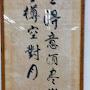 生得意須盡歡
金樽空對月